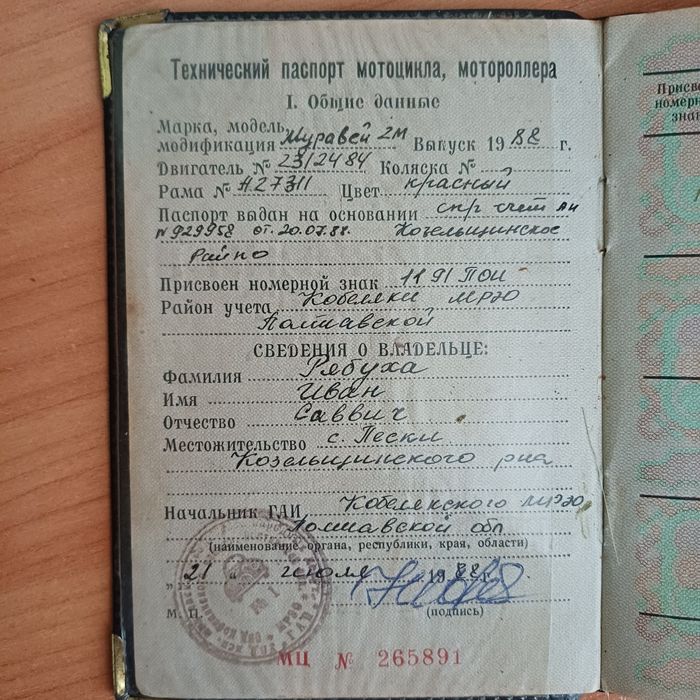 Технический паспорт мотоцикла, мотороллера
I. Общие данные
Марка, модель,
модификация Муравей 2М Выпуск 1988 г.
Двигатель № 2312484 Коляска №
Рама № А27311 Цвет красный
Паспорт выдан на основании спр счет АИ
№929958 от 20.07.88. Козельщинское
Райпо
Присвоен номерной знак 1191 ПОИ
Район учета Кобеляки МРЭО
Полтавской
СВЕДЕНИЯ О ВЛАДЕЛЬЦЕ:
Фамилия Рябуха
Имя Иван
Отчество Саввич
Местожительство с. Пески
Козельщинского р-на
Начальник ГАИ Кобелякского МРЭО
Полтавской обл
(наименование органа, республики, края, области)
„21" июля 1988 г.
М. П. (подпись)
МЦ № 265891
Присво
номерн
знак